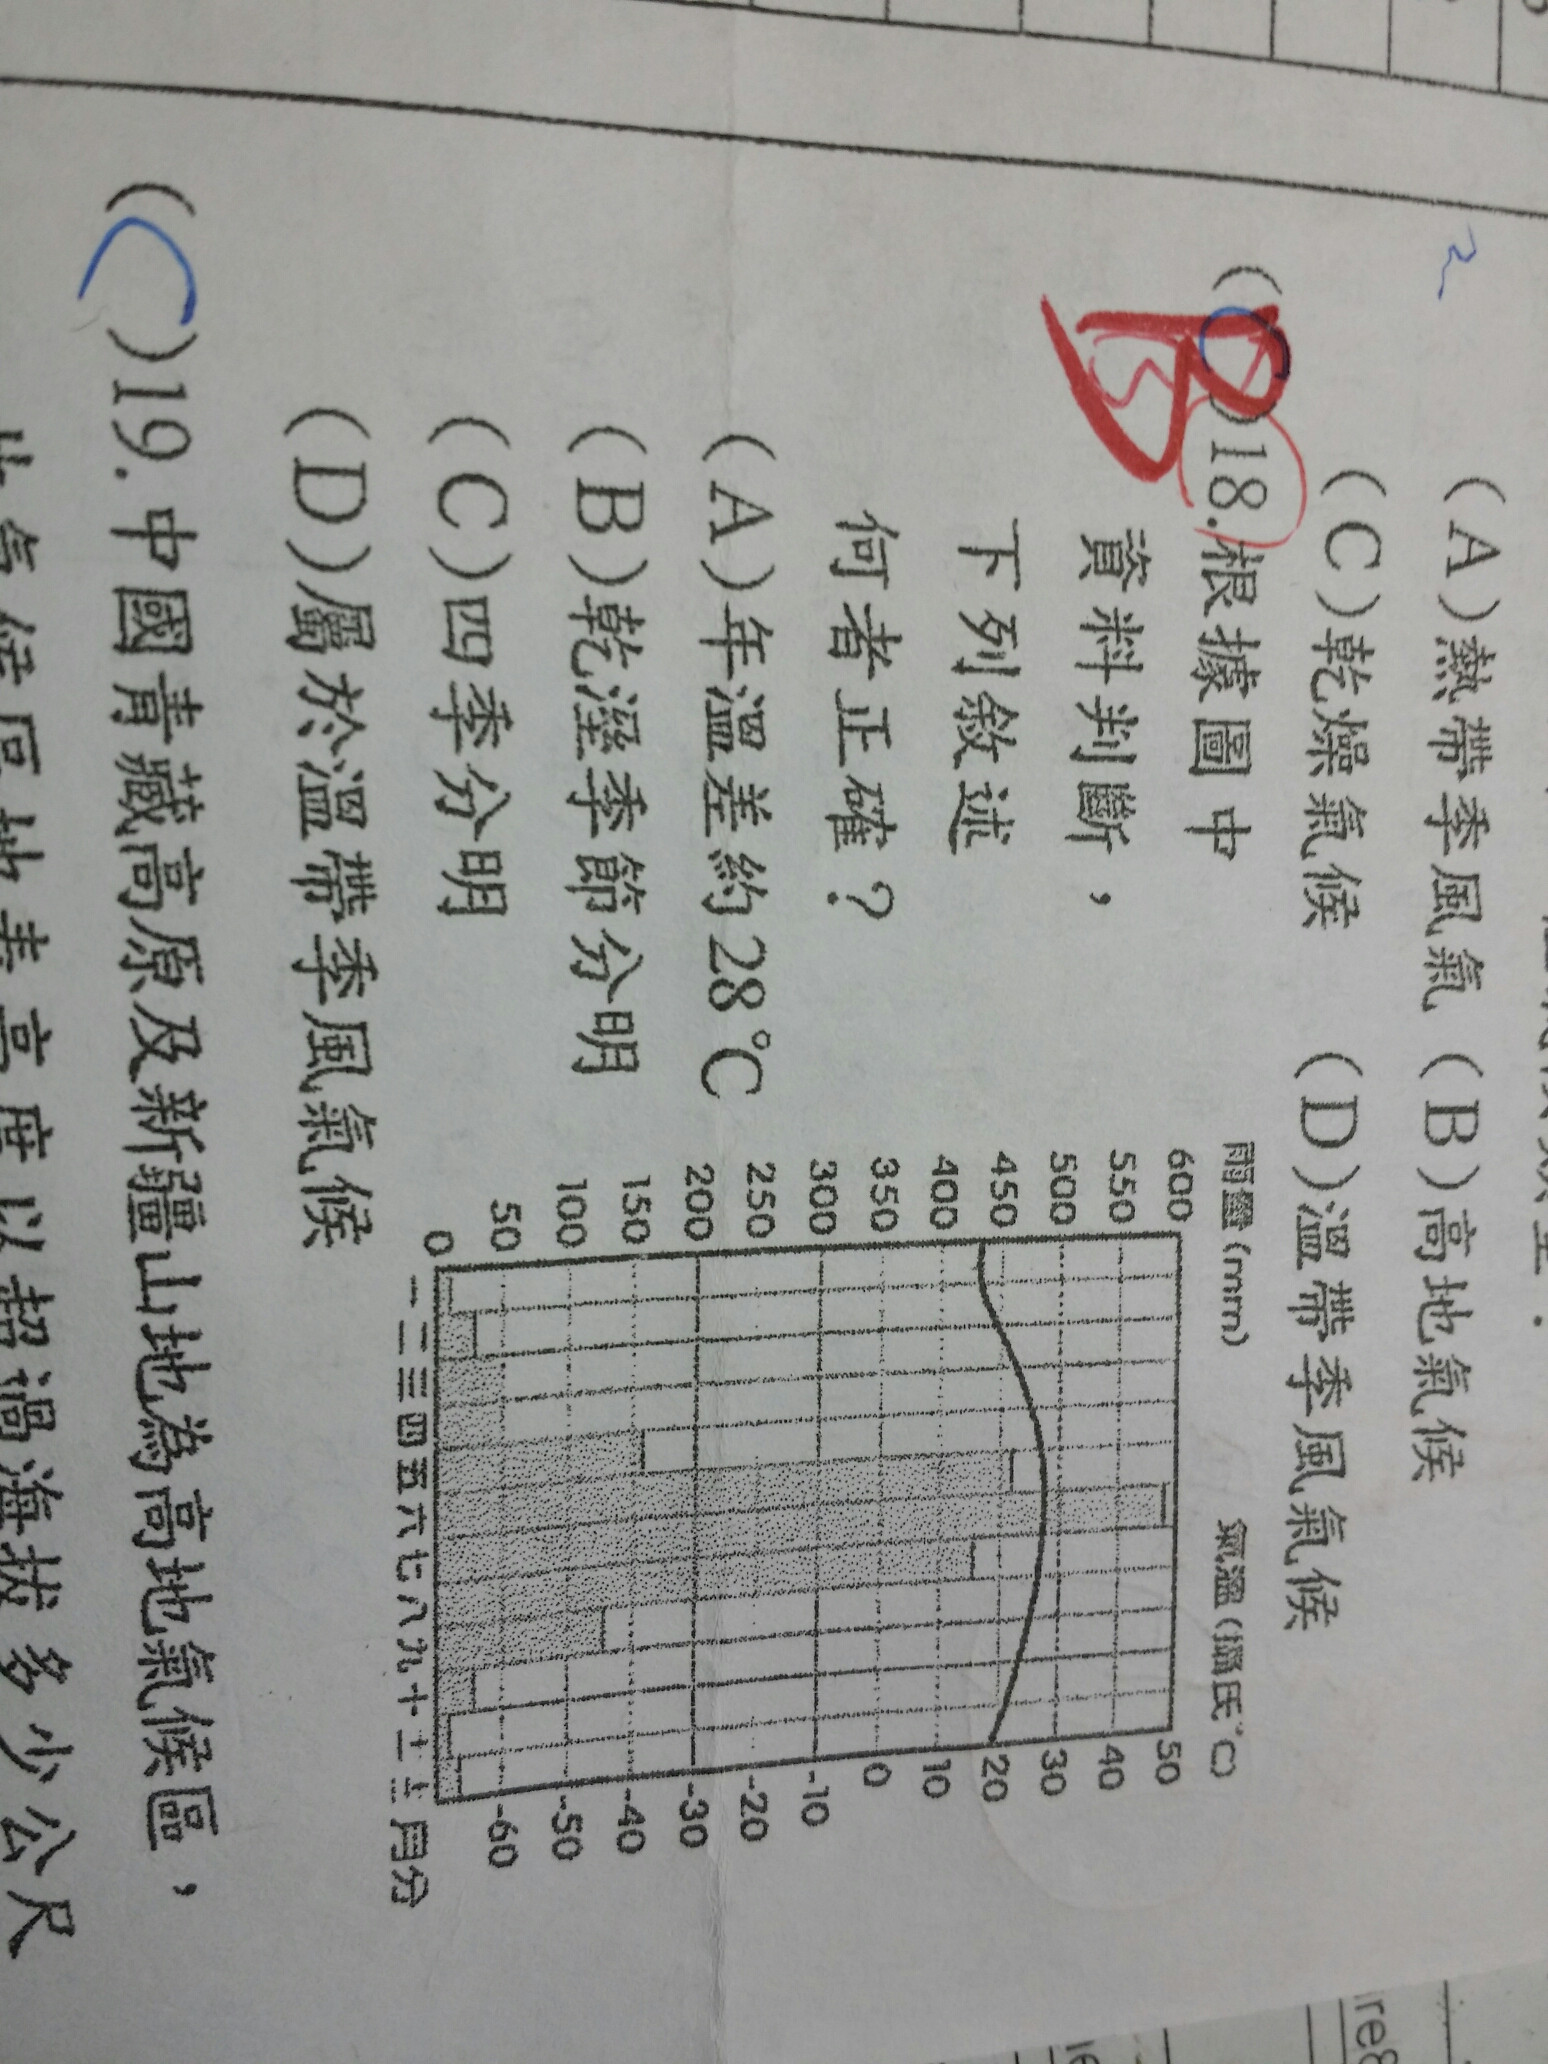 (A)熱帶季風氣候 (B)高地氣候
(C)乾燥氣候 (D)溫帶季風氣候
(B)18.根據圖中
資料判斷，
下列敘述
何者正確？
(A)年溫差約28℃
(B)乾溼季節分明
(C)四季分明
(D)屬於溫帶季風氣候
雨量(mm) 氣溫(攝氏℃)
600 50
550 40
500 30
450 20
400 10
350 0
300 -10
250 -20
200 -30
150 -40
100 -50
50 -60
0
一 二 三 四 五 六 七 八 九 十 十一 十二 月分
(C)19.中國青藏高原及新疆山地為高地氣候區，
此氣候區地表高度以超過海拔多少公尺